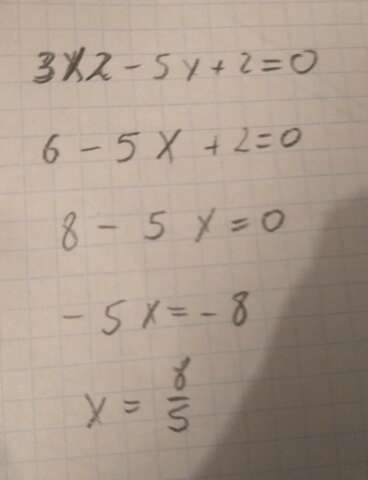 3x2 - 5x + 2 = 0
6 - 5x + 2 = 0
8 - 5x = 0
- 5x = - 8
x = 8/5